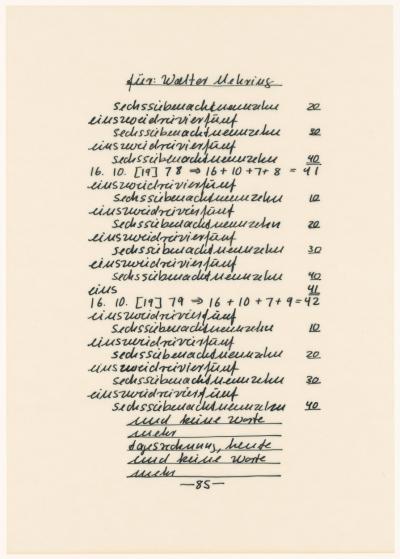 für: Walter Mehring
sechssiebenachtneunzehn 20
einszweidreivierfünf
sechssiebenachtneunzehn 30
einszweidreivierfünf
sechssiebenachtneunzehn 40
16. 10. [19] 78 ⇒ 16 + 10 + 7 + 8 = 41
einszweidreivierfünf
sechssiebenachtneunzehn 10
einszweidreivierfünf
sechssiebenachtneunzehn 20
einszweidreivierfünf
sechssiebenachtneunzehn 30
einszweidreivierfünf
sechssiebenachtneunzehn 40
eins 41
16. 10. [19] 79 ⇒ 16 + 10 + 7 + 9 = 42
einszweidreivierfünf
sechssiebenachtneunzehn 10
einszweidreivierfünf
sechssiebenachtneunzehn 20
einszweidreivierfünf
sechssiebenachtneunzehn 30
einszweidreivierfünf
sechssiebenachtneunzehn 40
und keine Worte
mehr
tagesrechnung, heute
und keine Worte
mehr
—85—